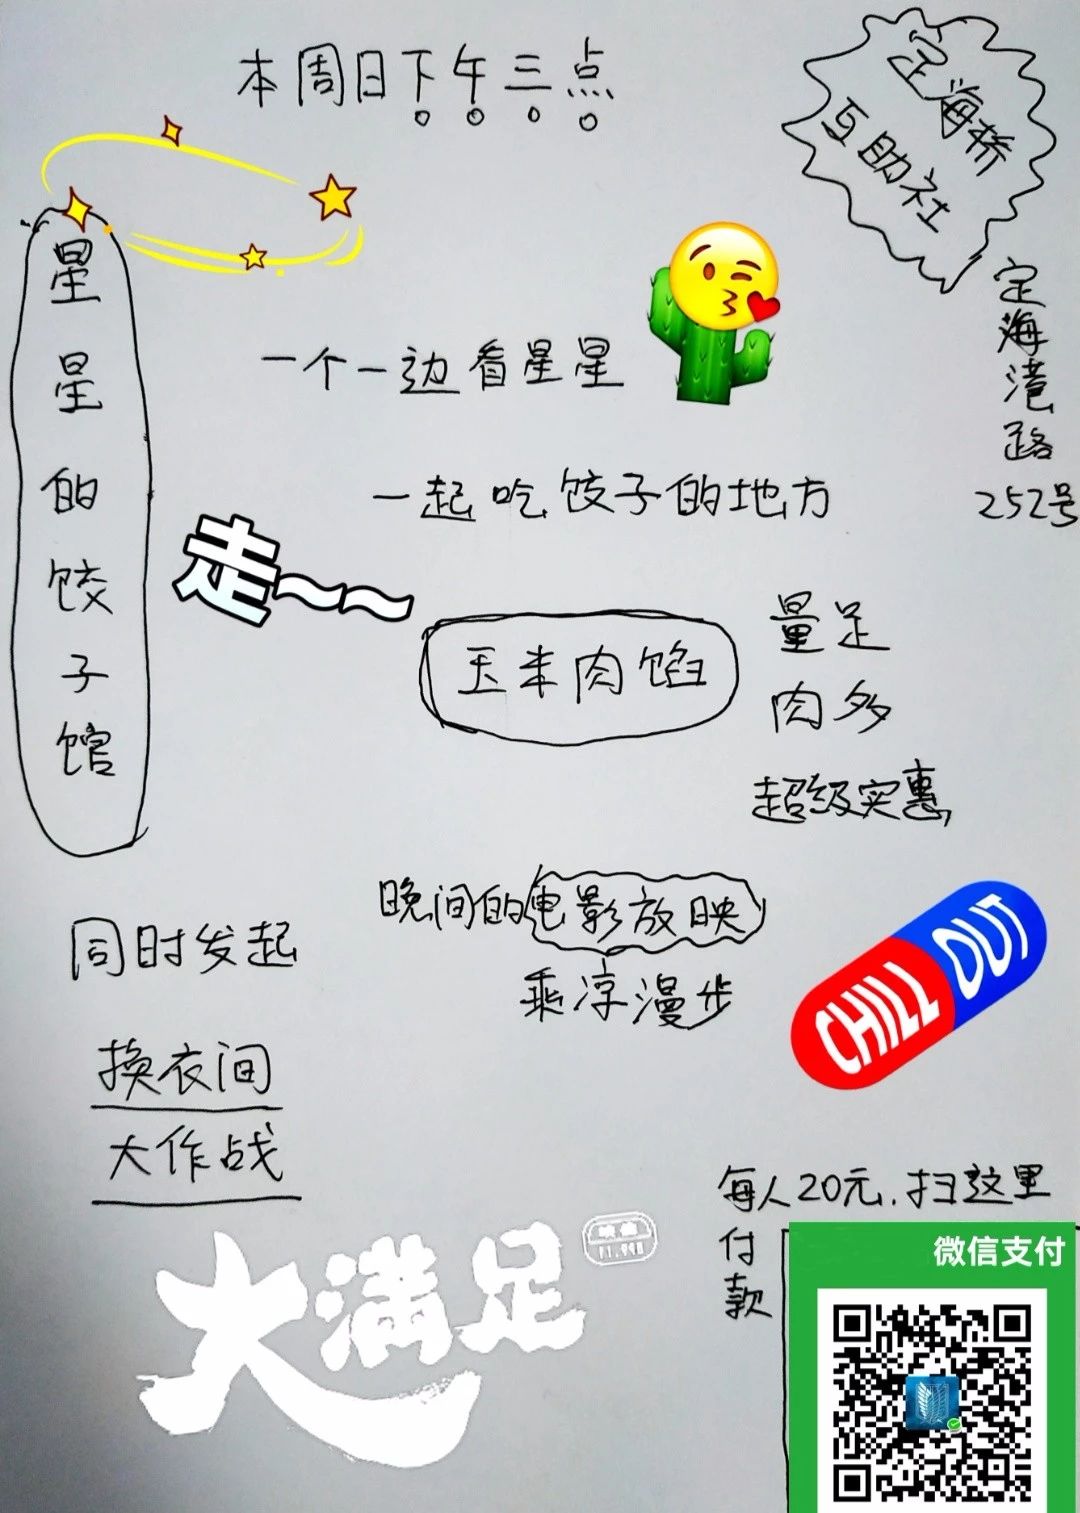 本周日下午三点
定海桥
互助社
定海港路
252号
星星的饺子馆
一个一边看星星
一起吃饺子的地方
走~~
玉米肉馅
量足
肉多
超级实惠
晚间的电影放映
乘凉漫步
CHILL OUT
同时发起
换衣间
大作战
大满足
每人20元，扫这里
付款
微信支付